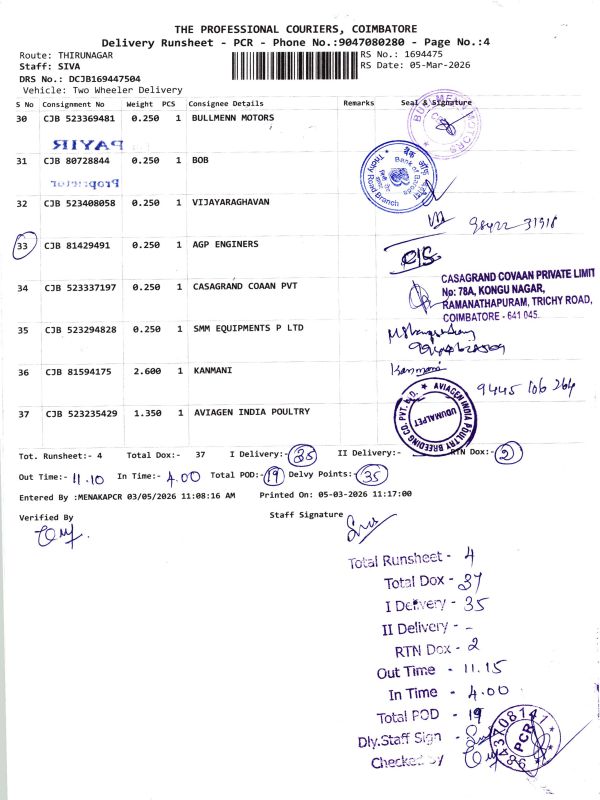 THE PROFESSIONAL COURIERS, COIMBATORE
Delivery Runsheet - PCR - Phone No.:9047080280 - Page No.:4
Route: THIRUNAGAR
RS No.: 1694475
Staff: SIVA
RS Date: 05-Mar-2026
DRS No.: DCJB169447504
Vehicle: Two Wheeler Delivery
S No Consignment No Weight PCS Consignee Details Remarks Seal & Signature
30 CJB 523369481 0.250 1 BULLMENN MOTORS
PAYIR
31 CJB 80728844 0.250 1 BOB
Bank of Baroda
Trichy Road Branch
Proprietor
32 CJB 523408058 0.250 1 VIJAYARAGHAVAN
98422 31918
33 CJB 81429491 0.250 1 AGP ENGINERS
34 CJB 523337197 0.250 1 CASAGRAND COAAN PVT
CASAGRAND COVAAN PRIVATE LIMIT
No: 78A, KONGU NAGAR,
RAMANATHAPURAM, TRICHY ROAD,
COIMBATORE - 641 045.
35 CJB 523294828 0.250 1 SMM EQUIPMENTS P LTD
36 CJB 81594175 2.600 1 KANMANI
Kanmani
9445 106 264
37 CJB 523235429 1.350 1 AVIAGEN INDIA POULTRY
AVIAGEN INDIA POULTRY BREEDING CO. PVT. LTD.
UDUMALPET
Tot. Runsheet:- 4 Total Dox:- 37 I Delivery:- 35 II Delivery:- RTN Dox:- 2
Out Time:- 11.10 In Time:- 4.00 Total POD:- 19 Delvy Points:- 35
Entered By :MENAKAPCR 03/05/2026 11:08:16 AM Printed On: 05-03-2026 11:17:00
Verified By
Staff Signature
Total Runsheet - 4
Total Dox - 37
I Delivery - 35
II Delivery - -
RTN Dox - 2
Out Time - 11.15
In Time - 4.00
Total POD - 19
Dly.Staff Sign -
Checked by
PCR
9843708141